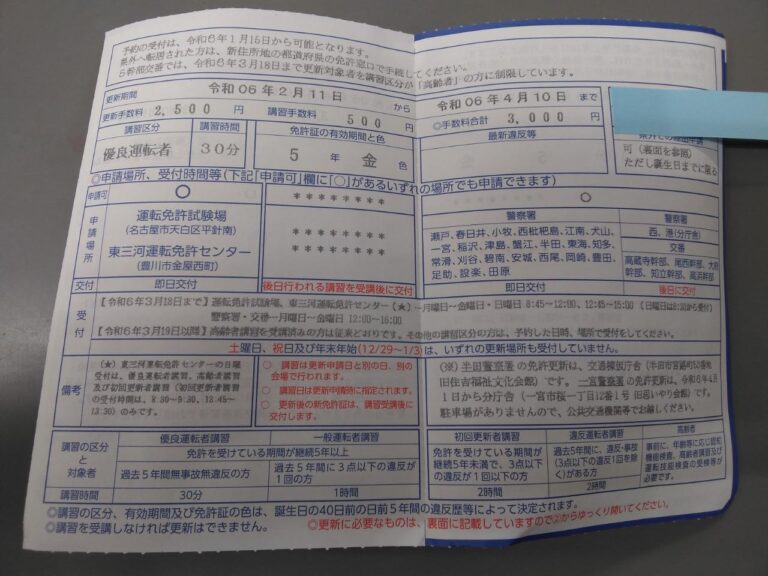 予約の受付は、令和6年1月15日から可能となります。
県外へ転居された方は、新住所地の都道府県の免許窓口で手続してください。
5幹部交番では、令和6年3月18日まで更新対象者を講習区分が「高齢者」の方に制限しています。
更新期間 令和06年2月11日 から 令和06年4月10日 まで
更新手数料 2,500 円 講習手数料 500 円 ◎手数料合計 3,000 円
講習区分 講習時間 免許証の有効期間と色 最新違反等
優良運転者 30分 5 年 金 色
可（裏面を参照）
ただし裏生日までに限る
◎申請場所、受付時間等（下記「申請可」欄に「○」があるいずれの場所でも申請できます）
申請可 ○ ＊＊＊＊＊＊＊ ○
申請場所
運転免許試験場
（名古屋市天白区平針南）
東三河運転免許センター
（豊川市金屋西町）
＊＊＊＊＊＊＊
＊＊＊＊＊＊＊
警察署
瀬戸、春日井、小牧、西枇杷島、江南、犬山、
一宮、稲沢、津島、蟹江、半田、東海、知多、
常滑、刈谷、碧南、安城、西尾、岡崎、豊田、
足助、設楽、田原
警察署
西、港（分庁舎）
交番
高蔵寺幹部、尾西幹部、大府
幹部、知立幹部、高浜幹部
交付 即日交付 後日行われる講習を受講後に交付 即日交付 後日に交付
受付
【令和6年3月18日まで】運転免許試験場、東三河運転免許センター（★）―月曜日～金曜日・日曜日 8:45～12:00、12:45～15:00（日曜日は8:30から受付）
警察署・交番―月曜日～金曜日 12:00～16:00
【令和6年3月19日以降】高齢者講習を受講済みの方は従来どおりです。その他の講習区分の方は、予約した日時、場所で受付をしてください。
土曜日、祝日及び年末年始（12/29～1/3）は、いずれの更新場所も受付していません。
備考
（★）東三河運転免許センターの日曜
受付は、優良運転者講習、高齢者講習
及び初回更新者講習（初回更新者講習
の受付時間は、8:30～9:30、13:45～
13:30）のみです。
○ 講習は更新申請日と別の日、別の
会場で行われます。
○ 講習日は更新申請時に指定されます。
○ 更新後の新免許証は、講習受講後に
交付します。
（※）半田警察署の免許更新は、交通棟仮庁舎（半田市宮路町
旧住吉福祉文化会館）です。一宮警察署の免許更新は、令和6年4月
1日から分庁舎（一宮市桜一丁目12番1号 旧思いやり会館）です。
駐車場がありませんので、公共交通機関等でお越しください。
講習の区分
と
対象者
優良運転者講習 一般運転者講習 初回更新者講習 違反運転者講習 高齢者
免許を受けている期間が継続5年以上
過去5年間無事故無違反の方
過去5年間に3点以下の違反が
1回の方
免許を受けている期間が
継続5年未満で、3点以下
の違反が1回以下の方
過去5年間に、違反・事故
（3点以下の違反1回を除
く）がある方
事前に、年齢等に応じ認知
機能検査、高齢者講習及び
運転技能検査の受検等が
必要です。
講習時間 30分 1時間 2時間 2時間
◎講習の区分、有効期間及び免許証の色は、誕生日の40日前の日前5年間の違反歴等によって決定されます。
◎講習を受講しなければ更新はできません。
◎更新に必要なものは、裏面に記載していますので②からゆっくり開いてください。